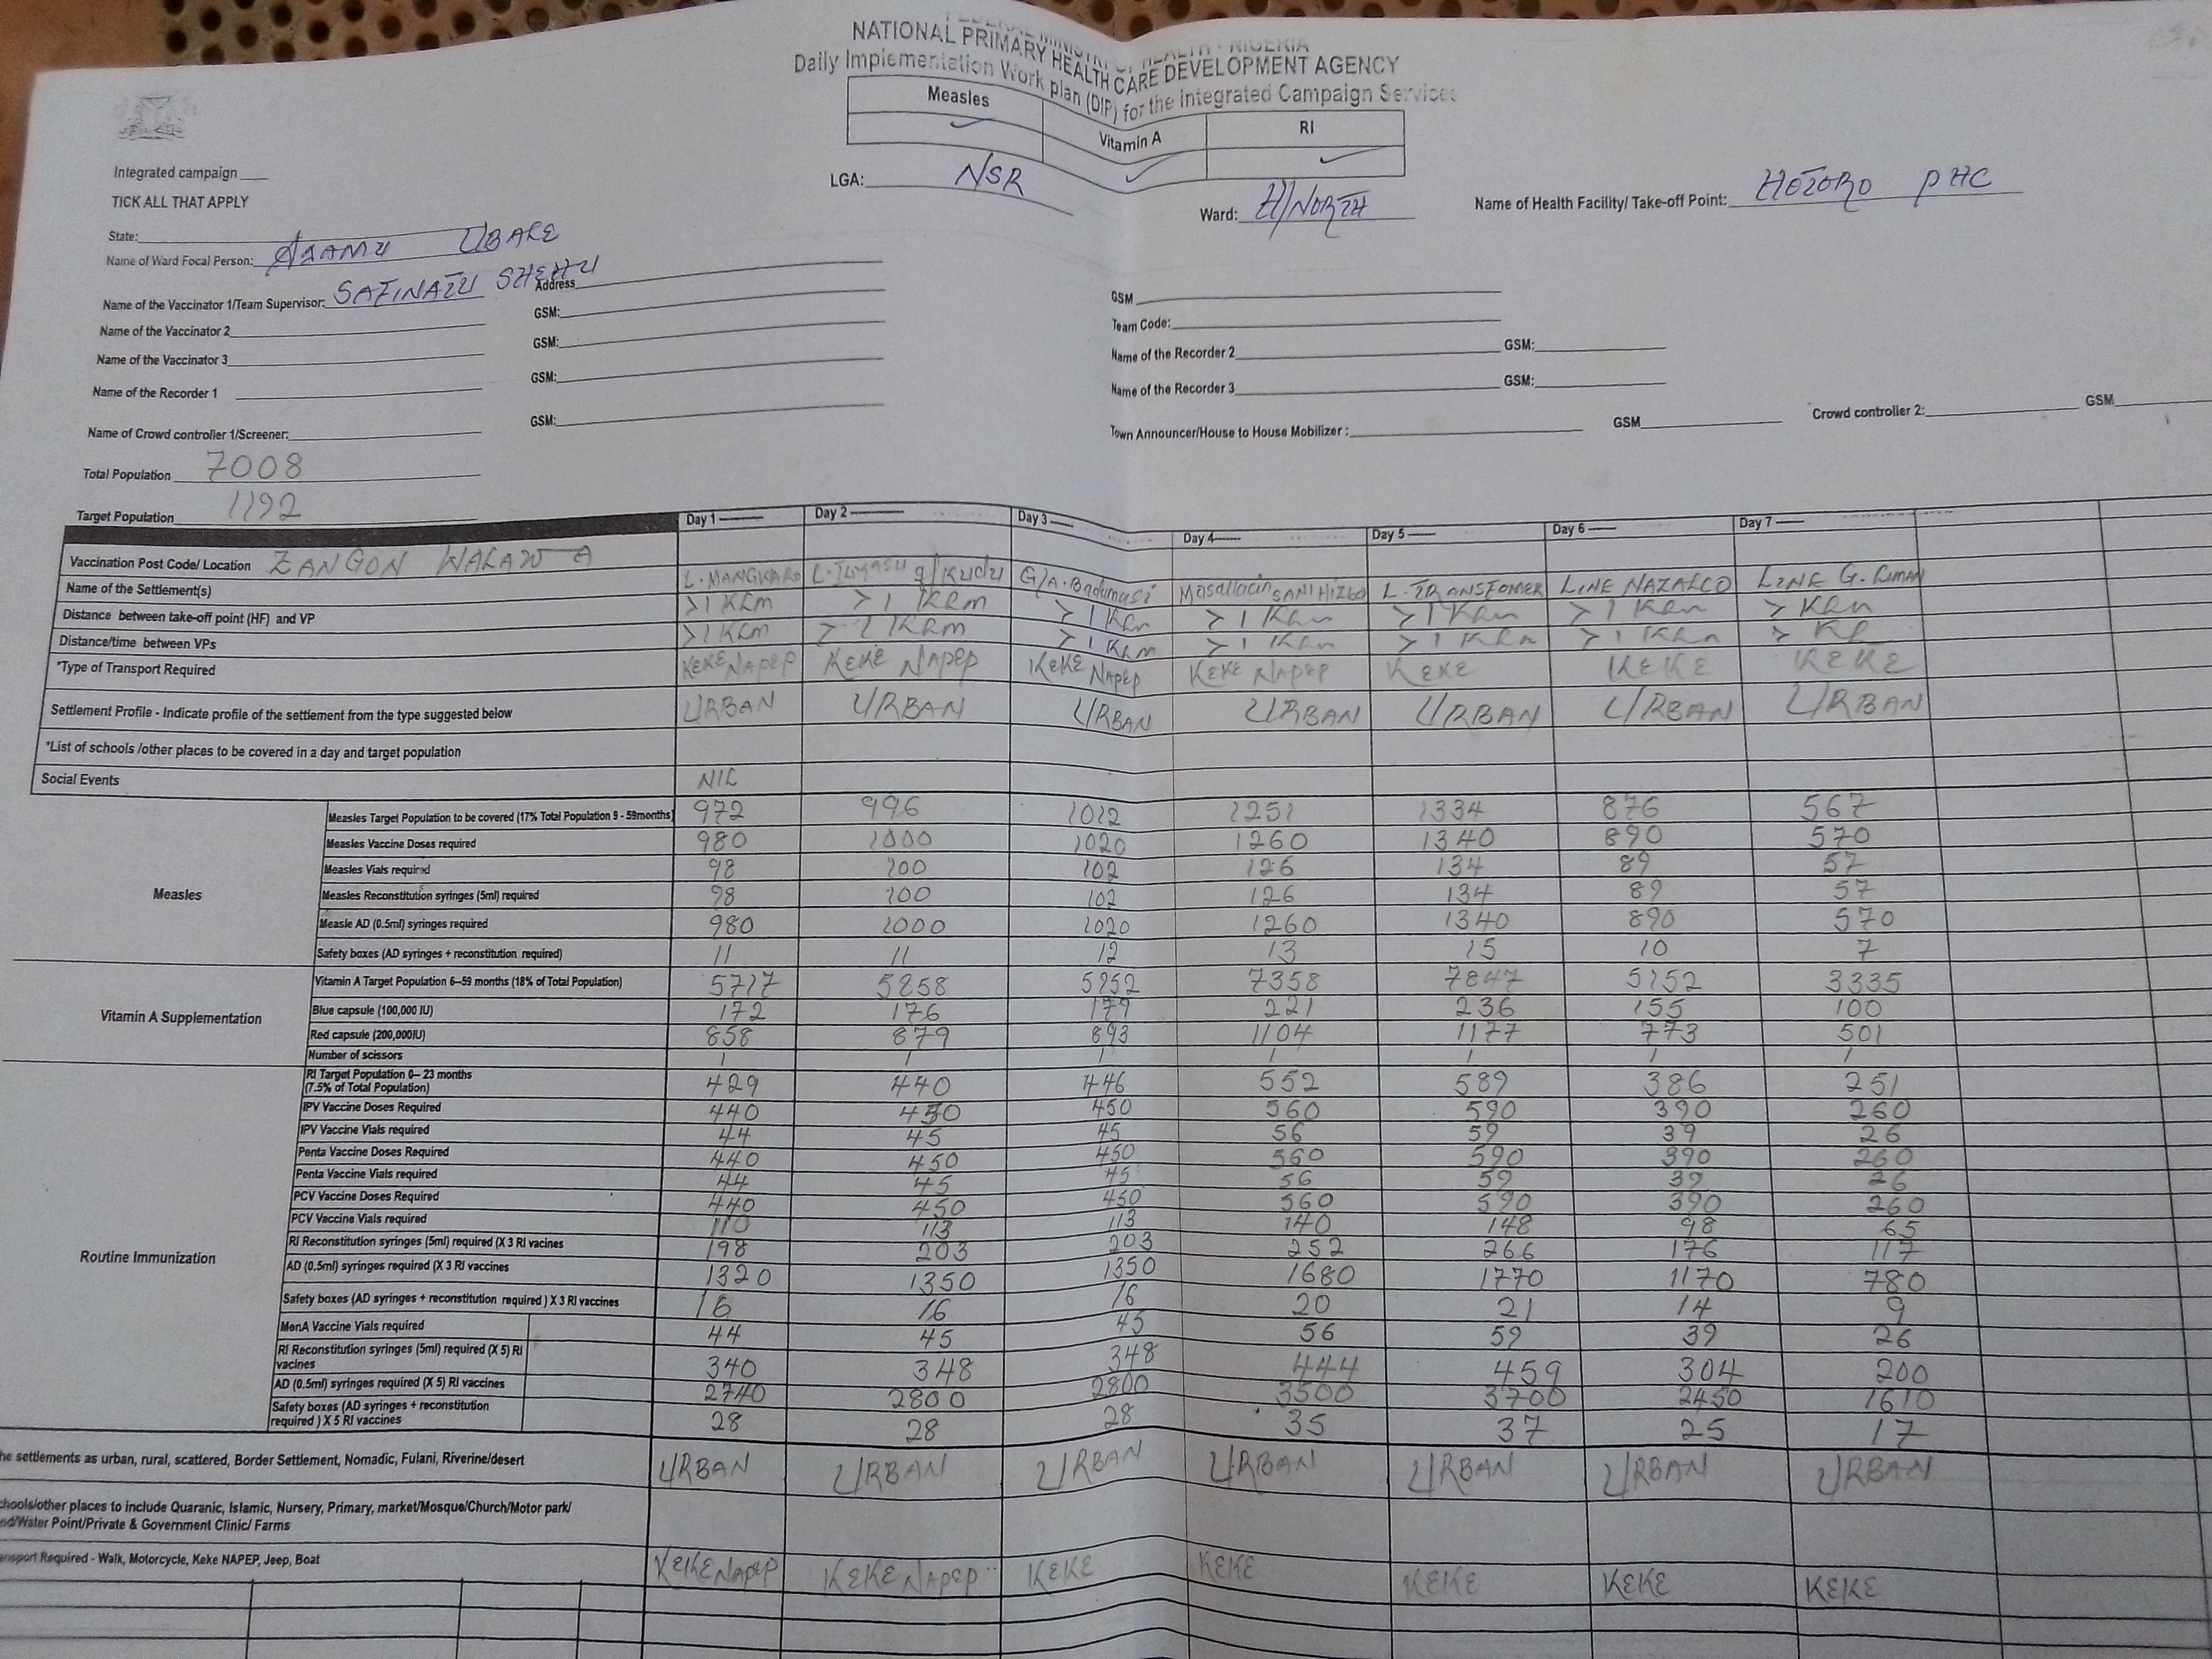 FEDERAL MINISTRY OF HEALTH - NIGERIA
NATIONAL PRIMARY HEALTH CARE DEVELOPMENT AGENCY
Daily Implementation Work plan (DIP) for the Integrated Campaign Services
Measles Vitamin A RI
✓ ✓ ✓
Integrated campaign
TICK ALL THAT APPLY
LGA: NSR Ward: H/NORTH Name of Health Facility/ Take-off Point: HOTORO PHC
State:
Name of Ward Focal Person: ADAMU UBALE Address
Name of the Vaccinator 1/Team Supervisor: SAFINATU SHEHU GSM: GSM
Name of the Vaccinator 2 GSM: Team Code:
Name of the Vaccinator 3 GSM: Name of the Recorder 2 GSM:
Name of the Recorder 1 GSM: Name of the Recorder 3 GSM:
Name of Crowd controller 1/Screener: Town Announcer/House to House Mobilizer : GSM Crowd controller 2: GSM
Total Population 7008
Target Population 1192
Day 1 Day 2 Day 3 Day 4 Day 5 Day 6 Day 7
Vaccination Post Code/ Location ZANGON WALAWA
Name of the Settlement(s) L. MANGWARO G/A. Badamasi Masallacin SANI HIZBO L. TRANSFOMER LINE NAZALCO LINE G.
Distance between take-off point (HF) and VP >1 KLm >1 KLm >1 KLm >1 KLm >1 KLm >1 KLm > KLm
Distance/time between VPs >1 KLm >1 KLm >1 KLm >1 KLm >1 KLm >1 KLm
*Type of Transport Required KEKE NAPEP KEKE NAPEP KEKE NAPEP KEKE NAPEP KEKE KEKE KEKE
Settlement Profile - Indicate profile of the settlement from the type suggested below URBAN URBAN URBAN URBAN URBAN URBAN URBAN
*List of schools /other places to be covered in a day and target population
Social Events NIL
Measles
Measles Target Population to be covered (17% Total Population 9 - 59months) 972 996 1012 1251 1334 876 567
Measles Vaccine Doses required 980 1000 1020 1260 1340 890 570
Measles Vials required 98 100 102 126 134 89 57
Measles Reconstitution syringes (5ml) required 98 100 102 126 134 89 57
Measle AD (0.5ml) syringes required 980 1000 1020 1260 1340 890 570
Safety boxes (AD syringes + reconstitution required) 11 11 12 13 15 10 7
Vitamin A Supplementation
Vitamin A Target Population 6–59 months (18% of Total Population) 5717 5858 5952 7358 7847 5152 3335
Blue capsule (100,000 IU) 172 176 179 221 236 155 100
Red capsule (200,000IU) 858 879 893 1104 1177 773 501
Number of scissors 1 1 1 1 1 1 1
Routine Immunization
RI Target Population 0– 23 months
(7.5% of Total Population) 429 440 446 552 589 386 251
IPV Vaccine Doses Required 440 450 450 560 590 390 260
IPV Vaccine Vials required 44 45 45 56 59 39 26
Penta Vaccine Doses Required 440 450 450 560 590 390 260
Penta Vaccine Vials required 44 45 45 56 59 39 26
PCV Vaccine Doses Required 440 450 450 560 590 390 260
PCV Vaccine Vials required 110 113 113 140 148 98 65
RI Reconstitution syringes (5ml) required (X 3 RI vacines 198 203 203 252 266 176 117
AD (0.5ml) syringes required (X 3 RI vaccines 1320 1350 1350 1680 1770 1170 780
Safety boxes (AD syringes + reconstitution required ) X 3 RI vaccines 16 16 16 20 21 14 9
MenA Vaccine Vials required 44 45 45 56 59 39 26
RI Reconstitution syringes (5ml) required (X 5) RI
vacines 340 348 348 444 459 304 200
AD (0.5ml) syringes required (X 5) RI vaccines 2740 2800 2800 3500 3700 2450 1610
Safety boxes (AD syringes + reconstitution
required ) X 5 RI vaccines 28 28 28 35 37 25 17
he settlements as urban, rural, scattered, Border Settlement, Nomadic, Fulani, Riverine/desert URBAN URBAN URBAN URBAN URBAN URBAN URBAN
chools/other places to include Quaranic, Islamic, Nursery, Primary, market/Mosque/Church/Motor park/
nd/Water Point/Private & Government Clinic/ Farms
ansport Required - Walk, Motorcycle, Keke NAPEP, Jeep, Boat KEKE NAPEP KEKE NAPEP KEKE KEKE KEKE KEKE KEKE